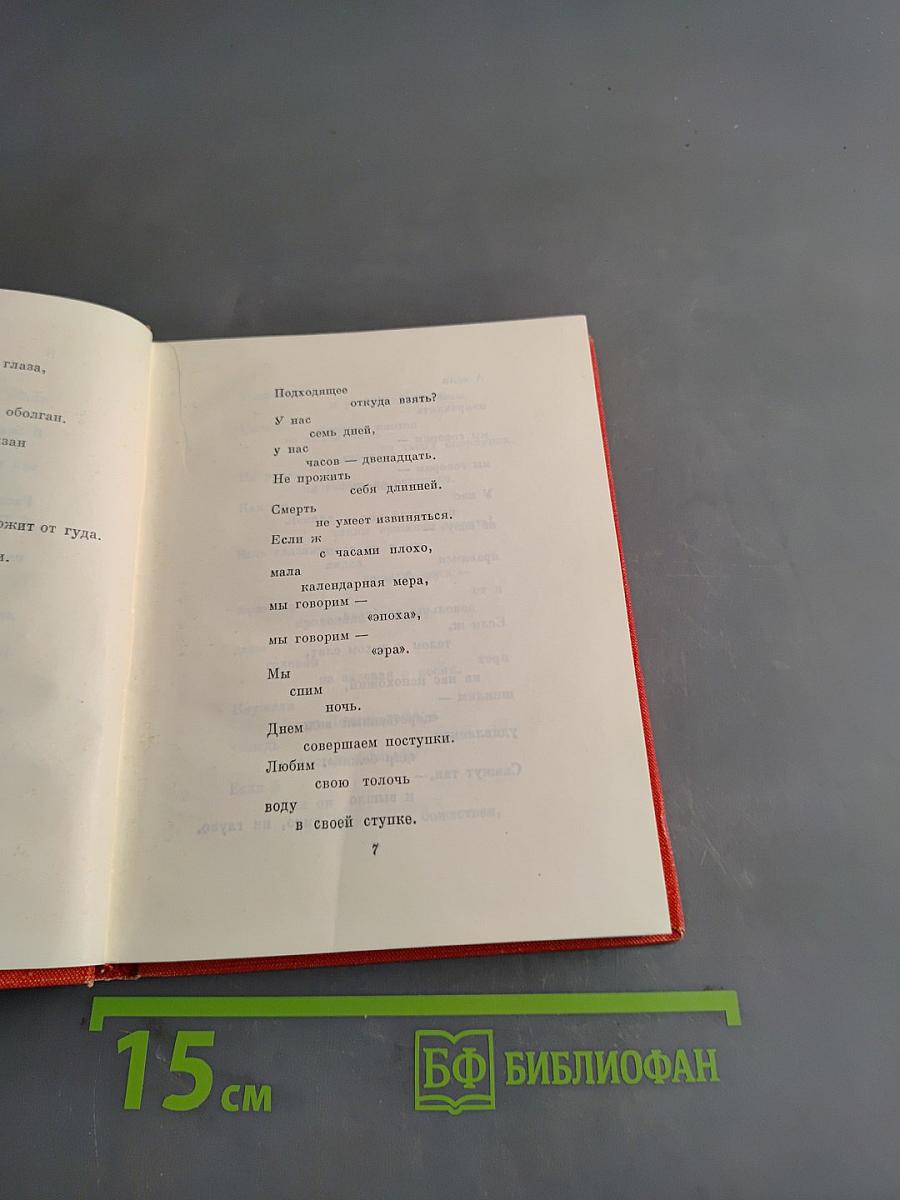 глаза,
оболган.
ожит от гуда.
Подходящее
откуда взять?
У нас
семь дней,
у нас
часов — двенадцать.
Не прожить
себя длинней.
Смерть
не умеет извиняться.
Если ж
с часами плохо,
мала
календарная мера,
мы говорим —
«эпоха»,
мы говорим —
«эра».
Мы
спим
ночь.
Днем
совершаем поступки.
Любим
свою толочь
воду
в своей ступке.
7
15 см
БФ БИБЛИОФАН